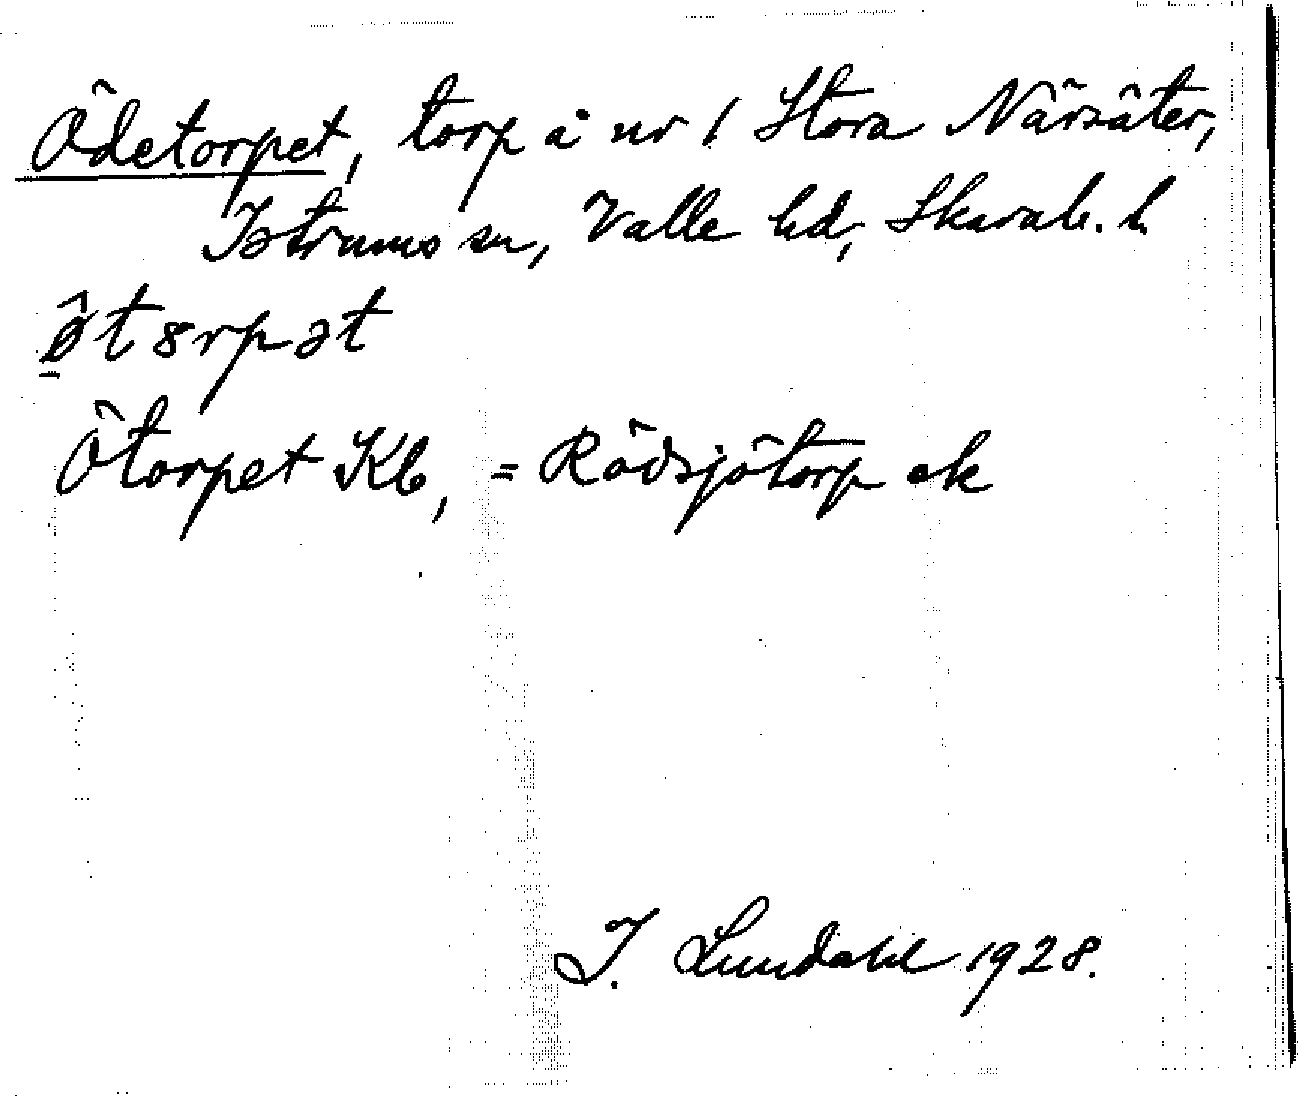 Ödetorpet, torp å nr 1 Stora Närsäter,
Istrums sn, Valle hd, Skarab. l.
ø̂t8rpət
Ötorpet Kb, = Rödsjötorp ek
I. Lundahl 1928.